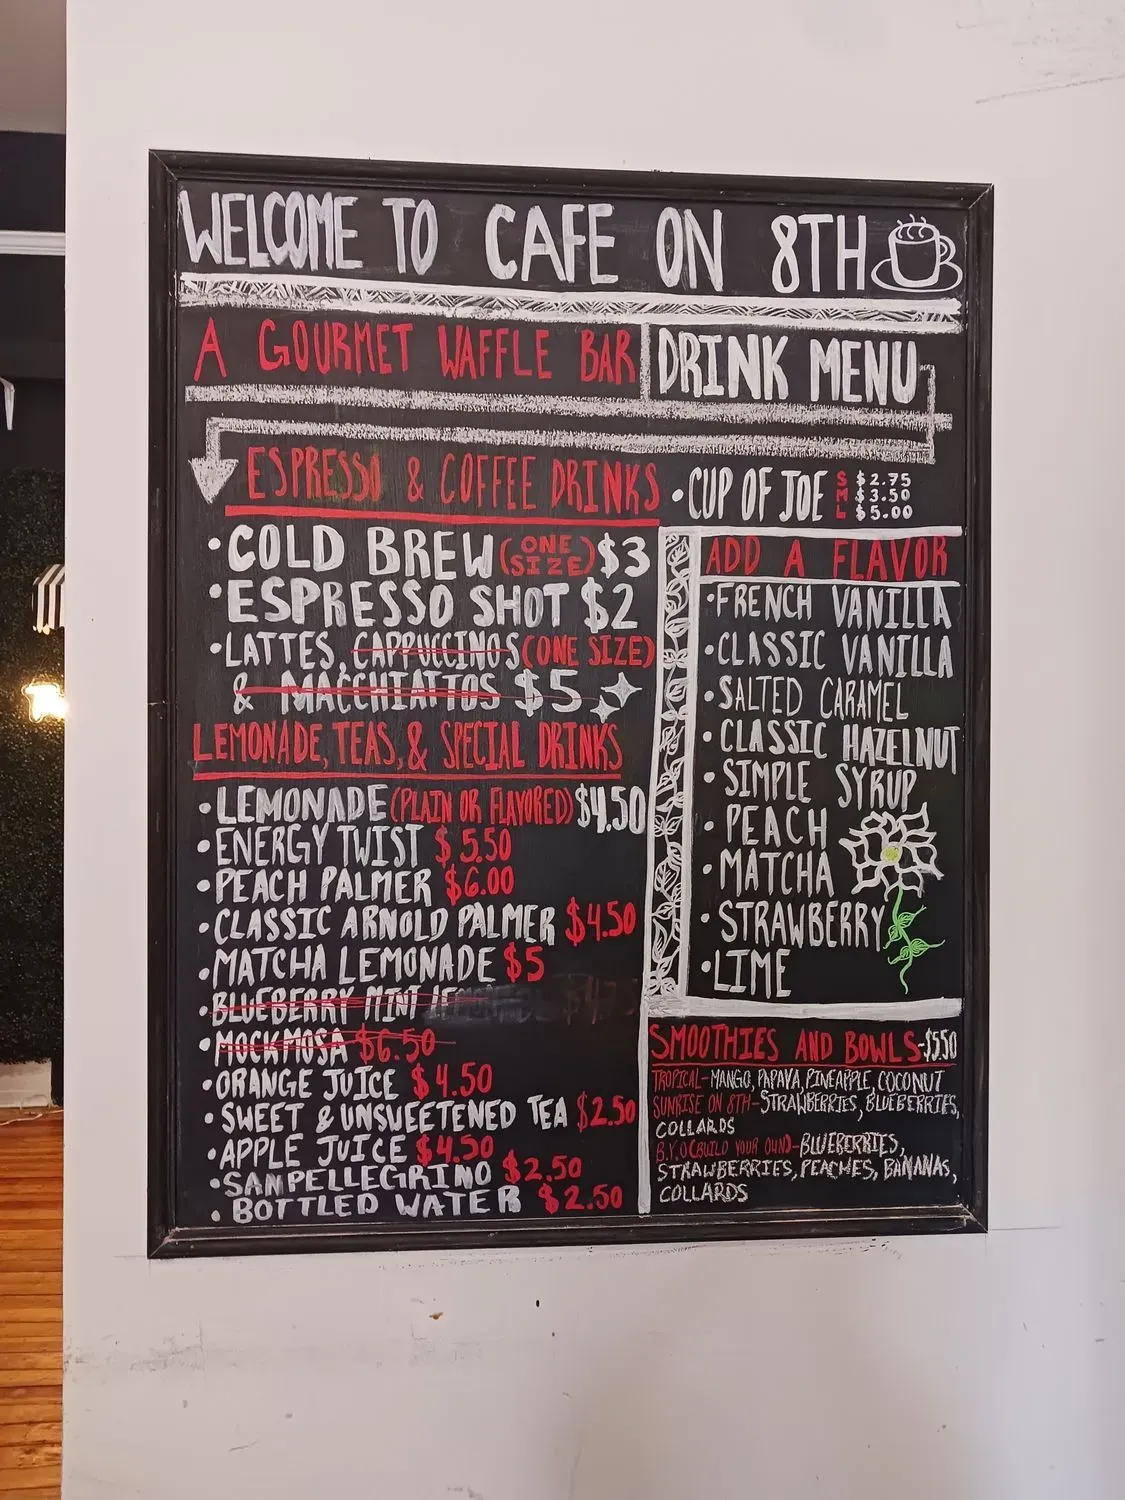 WELCOME TO CAFE ON 8TH
A GOURMET WAFFLE BAR
DRINK MENU
ESPRESSO & COFFEE DRINKS
• COLD BREW (ONE SIZE) $3
• ESPRESSO SHOT $2
• LATTES, CAPPUCCINOS (ONE SIZE)
& MACCHIATTOS $5
LEMONADE, TEAS, & SPECIAL DRINKS
• LEMONADE (PLAIN OR FLAVORED) $4.50
• ENERGY TWIST $5.50
• PEACH PALMER $6.00
• CLASSIC ARNOLD PALMER $4.50
• MATCHA LEMONADE $5
• BLUEBERRY MINT
• MOCAMOSA $6.50
• ORANGE JUICE $4.50
• SWEET & UNSWEETENED TEA $2.50
• APPLE JUICE $4.50
• SANPELLEGRINO $2.50
• BOTTLED WATER $2.50
• CUP OF JOE
S $2.75
M $3.50
L $5.00
ADD A FLAVOR
• FRENCH VANILLA
• CLASSIC VANILLA
• SALTED CARAMEL
• CLASSIC HAZELNUT
• SIMPLE SYRUP
• PEACH
• MATCHA
• STRAWBERRY
• LIME
SMOOTHIES AND BOWLS - $5.50
TROPICAL - MANGO, PAPAYA, PINEAPPLE, COCONUT
SUNRISE ON 8TH - STRAWBERRIES, BLUEBERRIES,
COLLARDS
B.Y.O (BUILD YOUR OWN) - BLUEBERRIES,
STRAWBERRIES, PEACHES, BANANAS,
COLLARDS